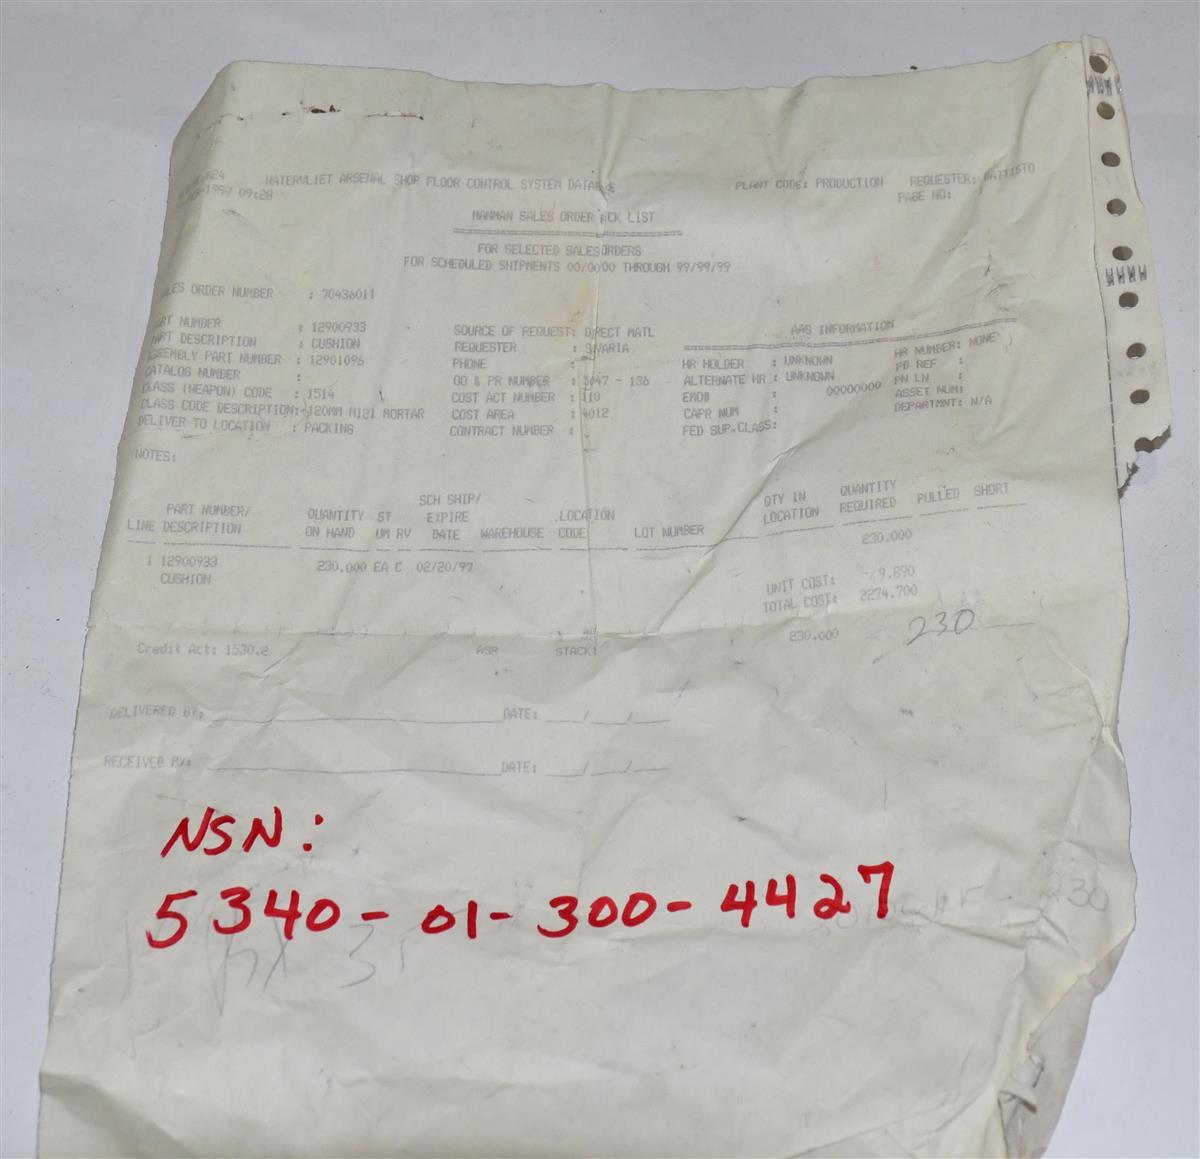 WATERVLIET ARSENAL SHOP FLOOR CONTROL SYSTEM PLANT CODE: PRODUCTION REQUESTER: BATTISTO
-1999 09:28 PAGE NO: 1
MANMAN SALES ORDER LIST
FOR SELECTED SALES ORDERS
FOR SCHEDULED SHIPMENTS 00/00/00 THROUGH 99/99/99
SALES ORDER NUMBER : 70436011
PART NUMBER : 12900933 SOURCE OF REQUEST: DIRECT MATL AAS INFORMATION
PART DESCRIPTION : CUSHION REQUESTER : HR NUMBER: NONE
ASSEMBLY PART NUMBER : 12901096 PHONE : HR HOLDER : UNKNOWN PD REF :
CATALOG NUMBER : DO & PR NUMBER : 136 ALTERNATE HR : UNKNOWN PN LN :
CLASS (WEAPON) CODE : 1514 COST ACT NUMBER : 110 EMO# : 00000000 ASSET NUM:
CLASS CODE DESCRIPTION: 120MM M121 MORTAR COST AREA : 4012 CAPR NUM : DEPARTMNT: N/A
DELIVER TO LOCATION : PACKING CONTRACT NUMBER : FED SUP.CLASS:
NOTES:
SCH SHIP/ QTY IN QUANTITY
PART NUMBER/ QUANTITY ST EXPIRE LOCATION LOCATION REQUIRED PULLED SHORT
LINE DESCRIPTION ON HAND UM RV DATE WAREHOUSE CODE LOT NUMBER
230.000
1 12900933 230.000 EA C 02/20/97
CUSHION UNIT COST: 9.890
TOTAL COST: 2274.700
230.000 230
Credit Act: 1530.2 ASR STACK1
DELIVERED BY: DATE: __/__/__
RECEIVED BY: DATE: __/__/__
NSN:
5340-01-300-4427
- 230